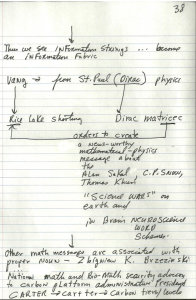 38
Thus we see INFormation Strings ... become
an INFormation Fabric
Vang → from St. Paul (Dirac) physics
Rice Lake shooting Dirac matrices
orders to create
a news-worthy
mathematical-physics
message about
the
Alan Sokal, C.P. Snow,
Thomas Kuhn
"Science WARS" on
earth and
in Brain NEUROSCIENCE
WORD
Science.
Other math message are associated with
proper Noun - Zbigniew K. Brzezinski
National math and Bio-Math security advisor
to carbon platform administrator President
CARTER → Cartter → Carbon trong lends